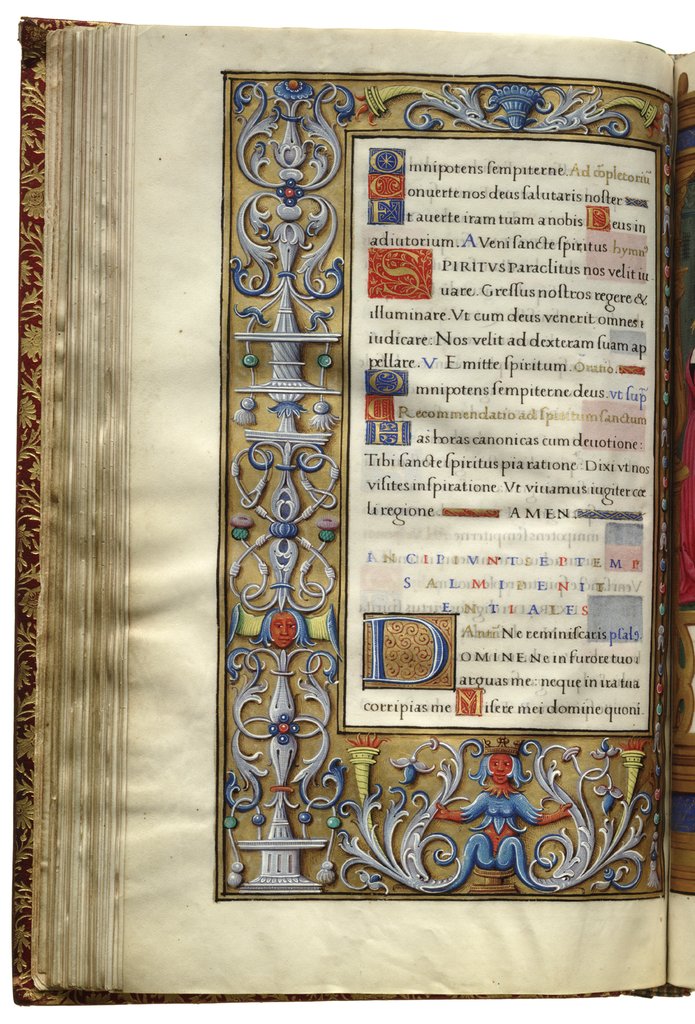 Omnipotens sempiterne. Ad cōpletoriū
Conuerte nos deus salutaris noster
Et auerte iram tuam a nobis Deus in
adiutorium. A Veni sancte spiritus hymnꝰ
SPIRITUS Paraclitus nos velit iu
uare. Gressus nostros regere &
illuminare. Vt cum deus venerit omnes
iudicare: Nos velit ad dexteram suam ap
pellare. V Emitte spiritum. Oratio.
Omnipotens sempiterne deus. vt sup̄
Recommendatio ad spiritum sanctum
Has horas canonicas cum deuotione:
Tibi sancte spiritus pia ratione: Dixi vt nos
visites inspiratione Vt viuamus iugiter cœ
li regione AMEN.
INCIPIVNT SEPTEM P
SALMI PENIT
ENTIALES
Ana Ne reminiscaris psalꝰ.
DOMINE Ne in furore tuo
arguas me: neque in ira tua
corripias me Misere mei domine quoni